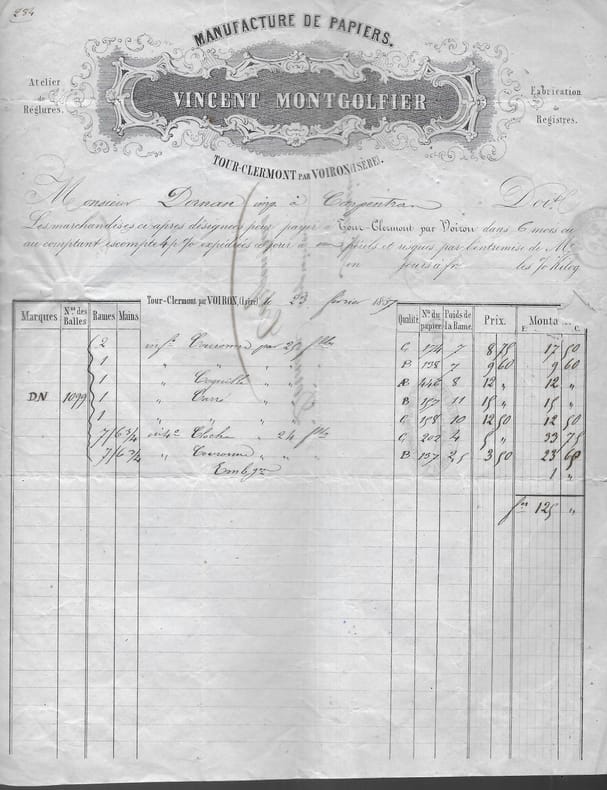 284
MANUFACTURE DE PAPIERS.
Atelier de Réglures.
VINCENT MONTGOLFIER
Fabrication de Registres.
TOUR-CLERMONT PAR VOIRON (ISÈRE).
Monsieur à Carpentras Doit
Les marchandises ci après désignées pour payer à Tour-Clermont par Voiron dans 6 mois ou
au comptant escompte 4 p % expédiées ce jour aux périls et risques par l'entremise de Mr
en jours à fr les % Kilog
Tour-Clermont par VOIRON, (Isère) le 23 février 1857
Marques Nos des Balles Rames Mains Qualité No du papier Poids de la Rame Prix. Monta
F. C.
2 Couronne par 25 C 174 7 8 75 17 50
1 " " " " B 138 7 9 60 9 60
1 " Coquille " " Æ 446 8 12 " 12 "
DN 1099 1 " Carré " B 157 11 15 " 15 "
1 " " " C 158 10 12 50 12 50
7/6 3/4 Cloche " 24 C 202 4 5 " 33 75
7/6 3/4 " Couronne " " B 137 3 50 23 60
Emb.ge 1 "
fr 125 "